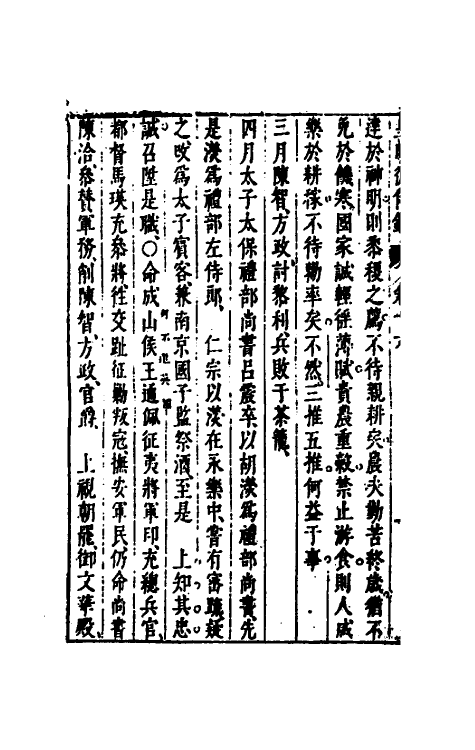 達於神明則黍稷之薦不待親耕矣農夫勤苦終歲猶不
免於饑寒國家誠輕徭薄賦貴農重穀禁止游食則人咸
樂於耕稼不待勸率矣不然三推五推何益于事
三月陳智方政討黎利兵敗于茶籠
四月太子太保禮部尚書呂震卒以胡濙爲禮部尚書先
是濙爲禮部左侍郎　仁宗以濙在永樂中嘗有審疏疑
之改爲太子賓客兼南京國子監祭酒至是　上知其忠
誠召陞是職〇命成山侯王通佩征夷將軍印充總兵官
都督馬瑛充參將往交趾征勦叛寇撫安軍民仍命尚書
陳洽參贊軍務削陳智方政官爵　上視朝罷御文華殿